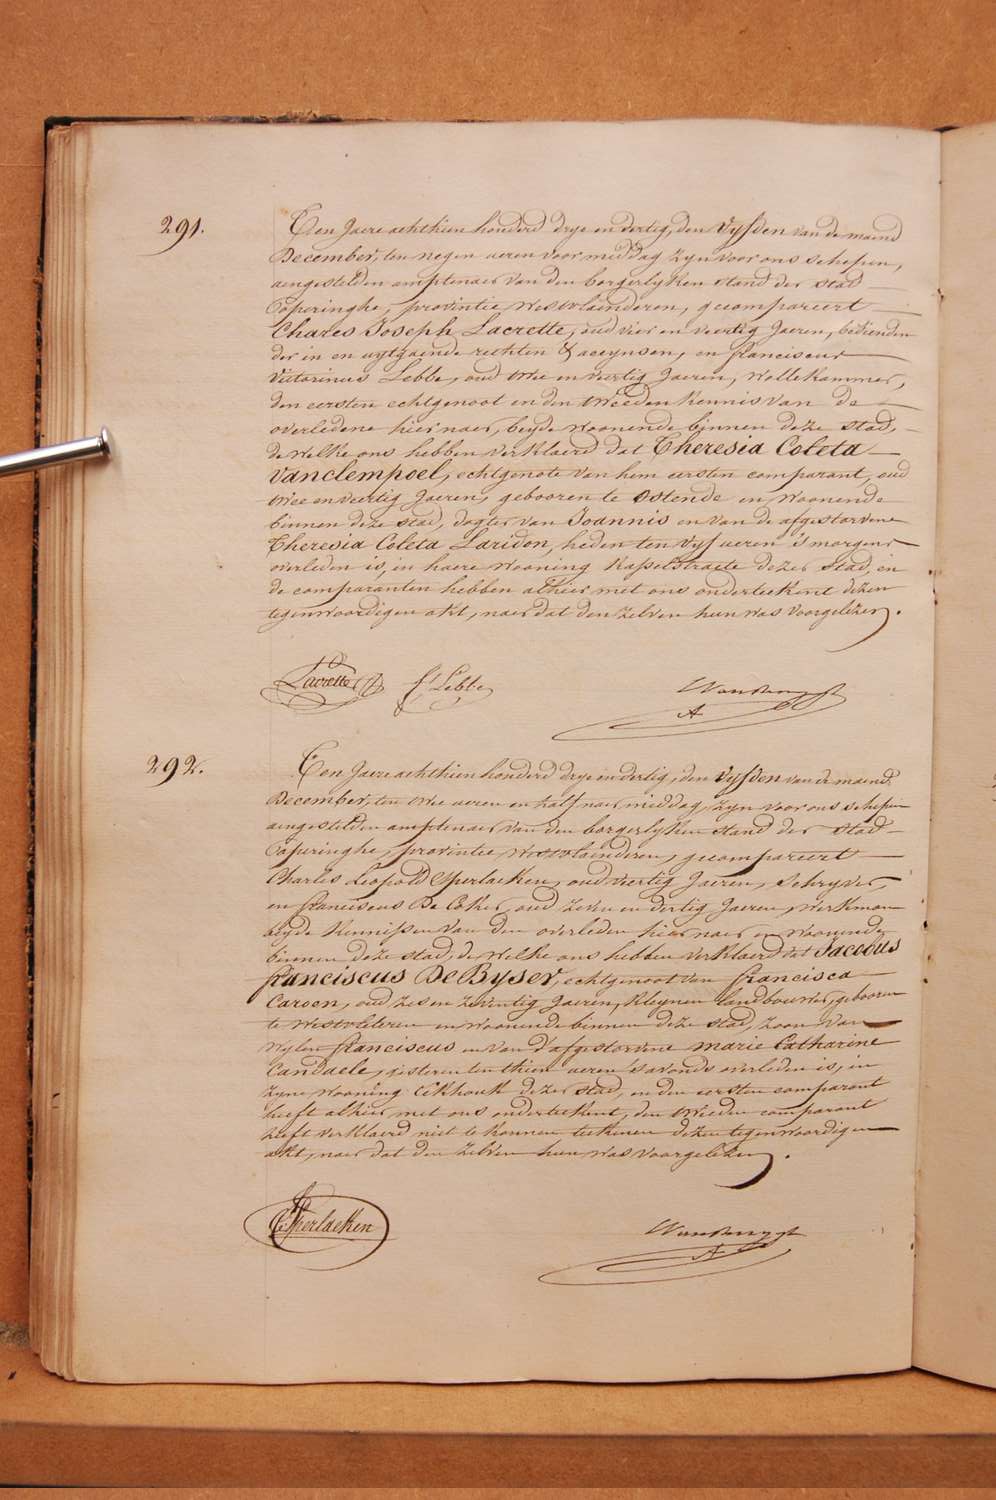 291.
Ten Jaere achthien honderd drye en dertig, den Vyfden van de maend
December, ten negen ueren voor middag zyn voor ons schepen,
aengestelden amptenaer van den borgerlyken stand der stad
Poperinghe, provintie Westvlaenderen, gecompareert
Charles Joseph Lacrette, oud vier en veertig Jaeren, bedienden
der in en uytgaende rechten & accynsen, en franciscus
Victorinus Lebbe, oud twee en veertig Jaeren, wollekammer,
den eersten echtgenoot en den tweeden kennis van de
overledene hier naer, beyde woonende binnen deze stad,
de welke ons hebben verklaerd dat Theresia Coleta
Vanclempoel, echtgenote van hem eersten comparant, oud
twee en veertig Jaeren, gebooren te Ostende en woonende
binnen deze stad, dogter van Joannis en van de afgestorvene
Theresia Coleta Laridon, heden ten vyf ueren 's morgens
overleden is, in haere wooning Kasselstraete dezer stad, en
de comparanten hebben alhier met ons onderteekent dezen
tegenwoordigen akt, naer dat den zelven hun was voorgelezen.
Lacrette f. Lebbe
A
292.
Ten Jaere achthien honderd drye en dertig, den Vyfden van de maend
December, ten twee ueren en half naer middag, zyn voor ons schepen
aengestelden amptenaer van den borgerlyken stand der stad
Poperinghe, provintie Westvlaenderen, gecompareert
Charles Leopold Sperlaeken, oud veertig Jaeren, schryver,
en franciscus De Coker, oud zeven en dertig Jaeren, werkman
beyde kennissen van den overleden hier naer en woonende
binnen deze stad, de welke ons hebben verklaerd dat Jacobus
franciscus De Byser, echtgenoot van francisca
Caroen, oud zes en zeventig Jaeren, kleynen landbouwer, gebooren
te Westvleteren en woonende binnen deze stad, zoon van
wylen franciscus en van d'afgestorvene marie Catharine
Candaele, gisteren ten thien ueren 's avonds overleden is, in
zyne wooning Eekhoutt dezer stad, en den eersten comparant
heeft alhier met ons onderteekent, den tweeden comparant
heeft verklaerd niet te konnen teekenen dezen tegenwoordigen
akt, naer dat den zelven hun was voorgelezen.
Sperlaeken
A